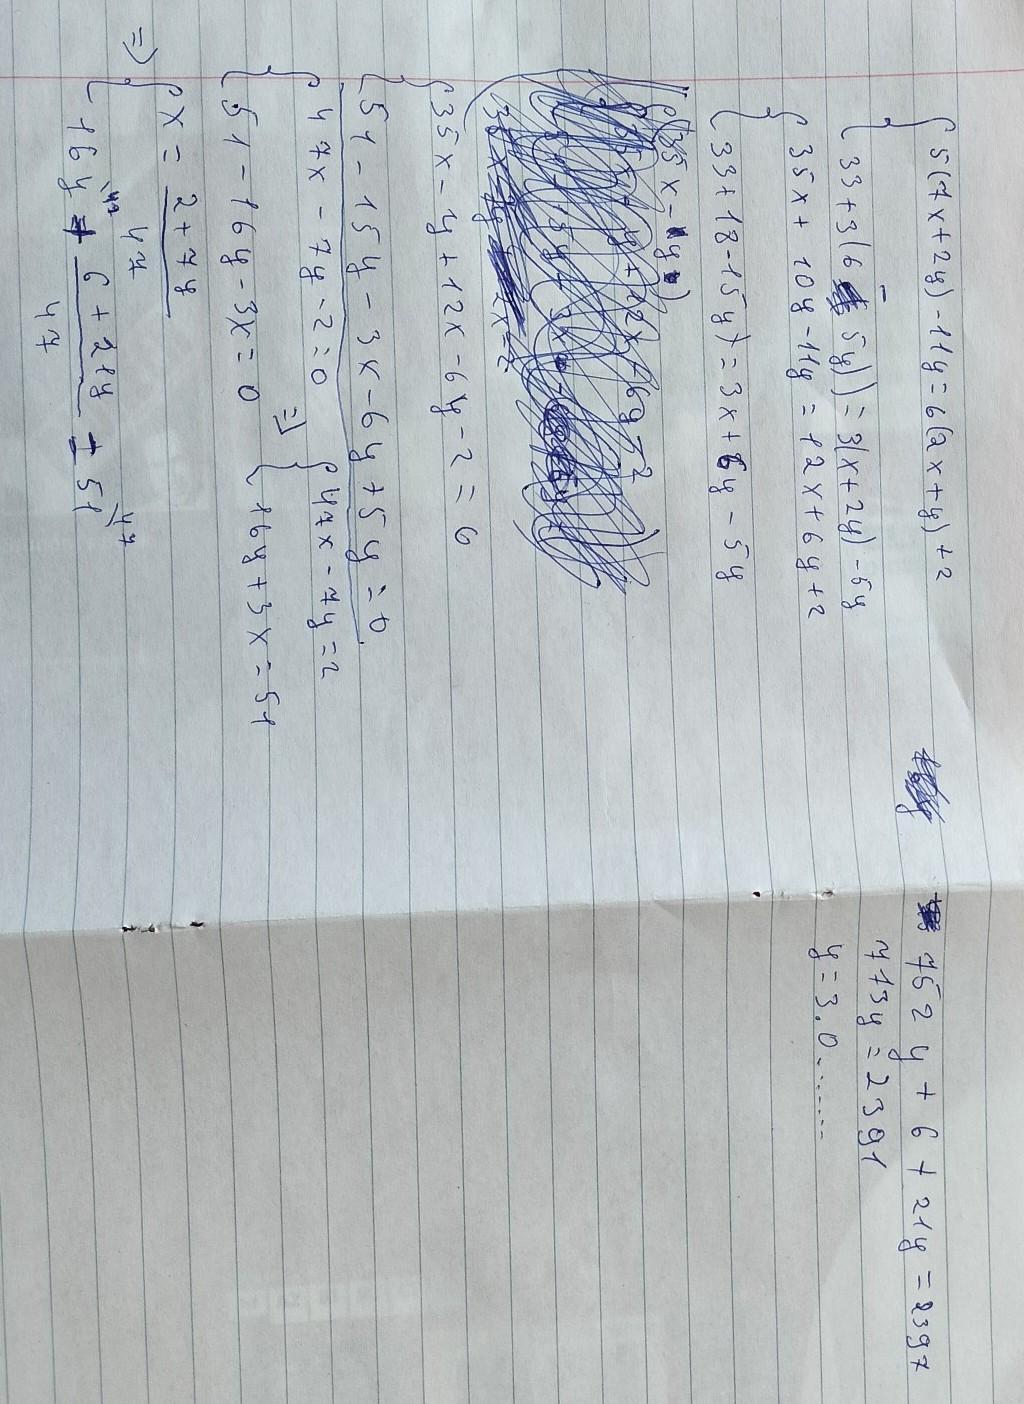 { 5(7x+2y)-11y=6(2x+y)+2
{ 33+3(6-5y)=3(x+2y)-5y
{ 35x+10y-11y=12x+6y+2
{ 33+18-15y)=3x+6y-5y
35x-1y
{ 35x-1y+12x-6y-2=6
{ 51-15y-3x-6y+5y=0
{ 47x-7y-2=0 => { 47x-7y=2
{ 51-16y-3x=0 { 16y+3x=51
=> { x = 2+7y / 47
{ 16y + 6+21y / 47 = 51
752y+6+21y=2397
773y=2391
y=3.0.......